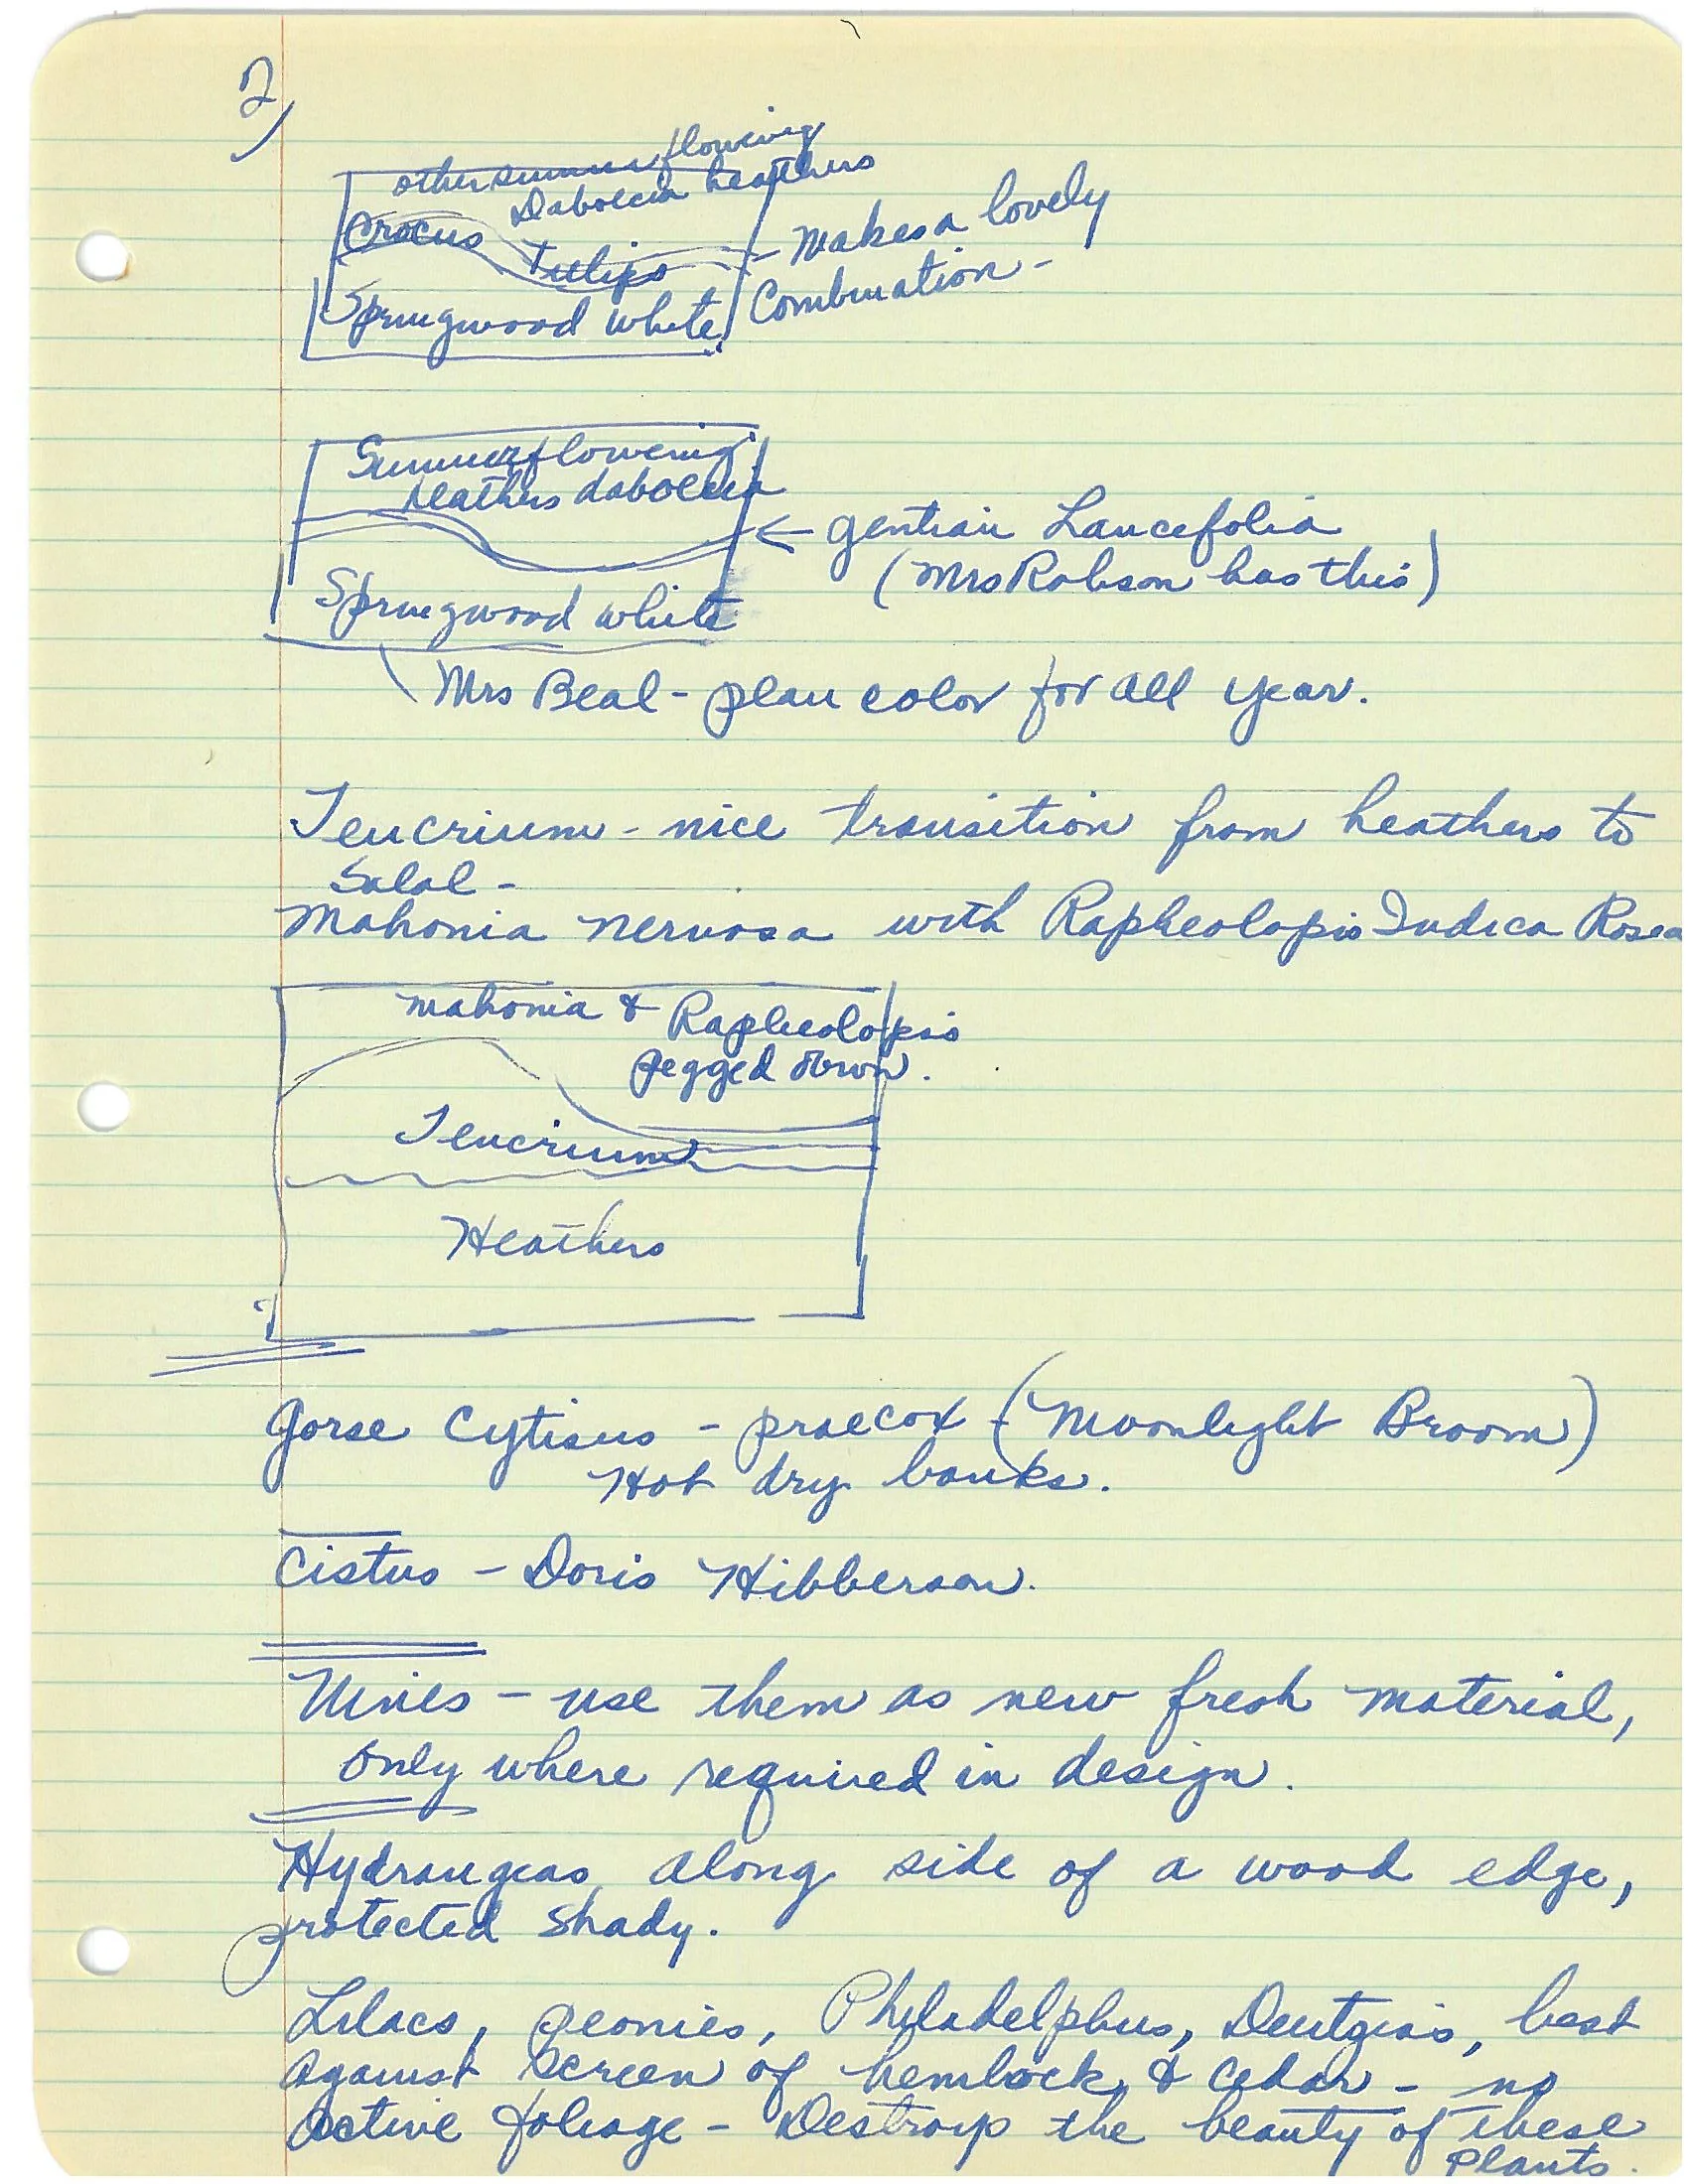 2)
other summer flowering
Daboecia heathers
Crocus
Tulips
Springwood white
- Makes a lovely
Combination -
Summerflowering
heathers daboecia
Springwood white
← gentian Lancefolia
(Mrs Robson has this)
Mrs Beal - plan color for all year.
Teucrium - nice transition from heathers to
Salal -
Mahonia nervosa with Rapheolopis Indica Rosea
mahonia & Rapheolopsis
pegged down.
Teucrium
Heathers
Gorse Cytisus - praecox - (Moonlight Broom)
Hot dry banks.
Cistus - Doris Hibberson.
Vines - use them as new fresh material,
only where required in design.
Hydrangeas, along side of a wood edge,
protected shady.
Lilacs, peonies, Philadelphus, Deutzia's, best
against screen of hemlock, & Cedar - no
active foliage - Destroys the beauty of these
plants.